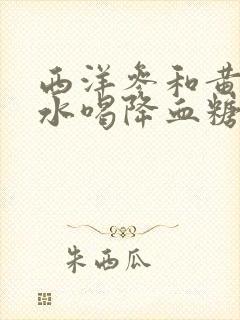 西洋参和黄
水喝降血糖
朱西瓜